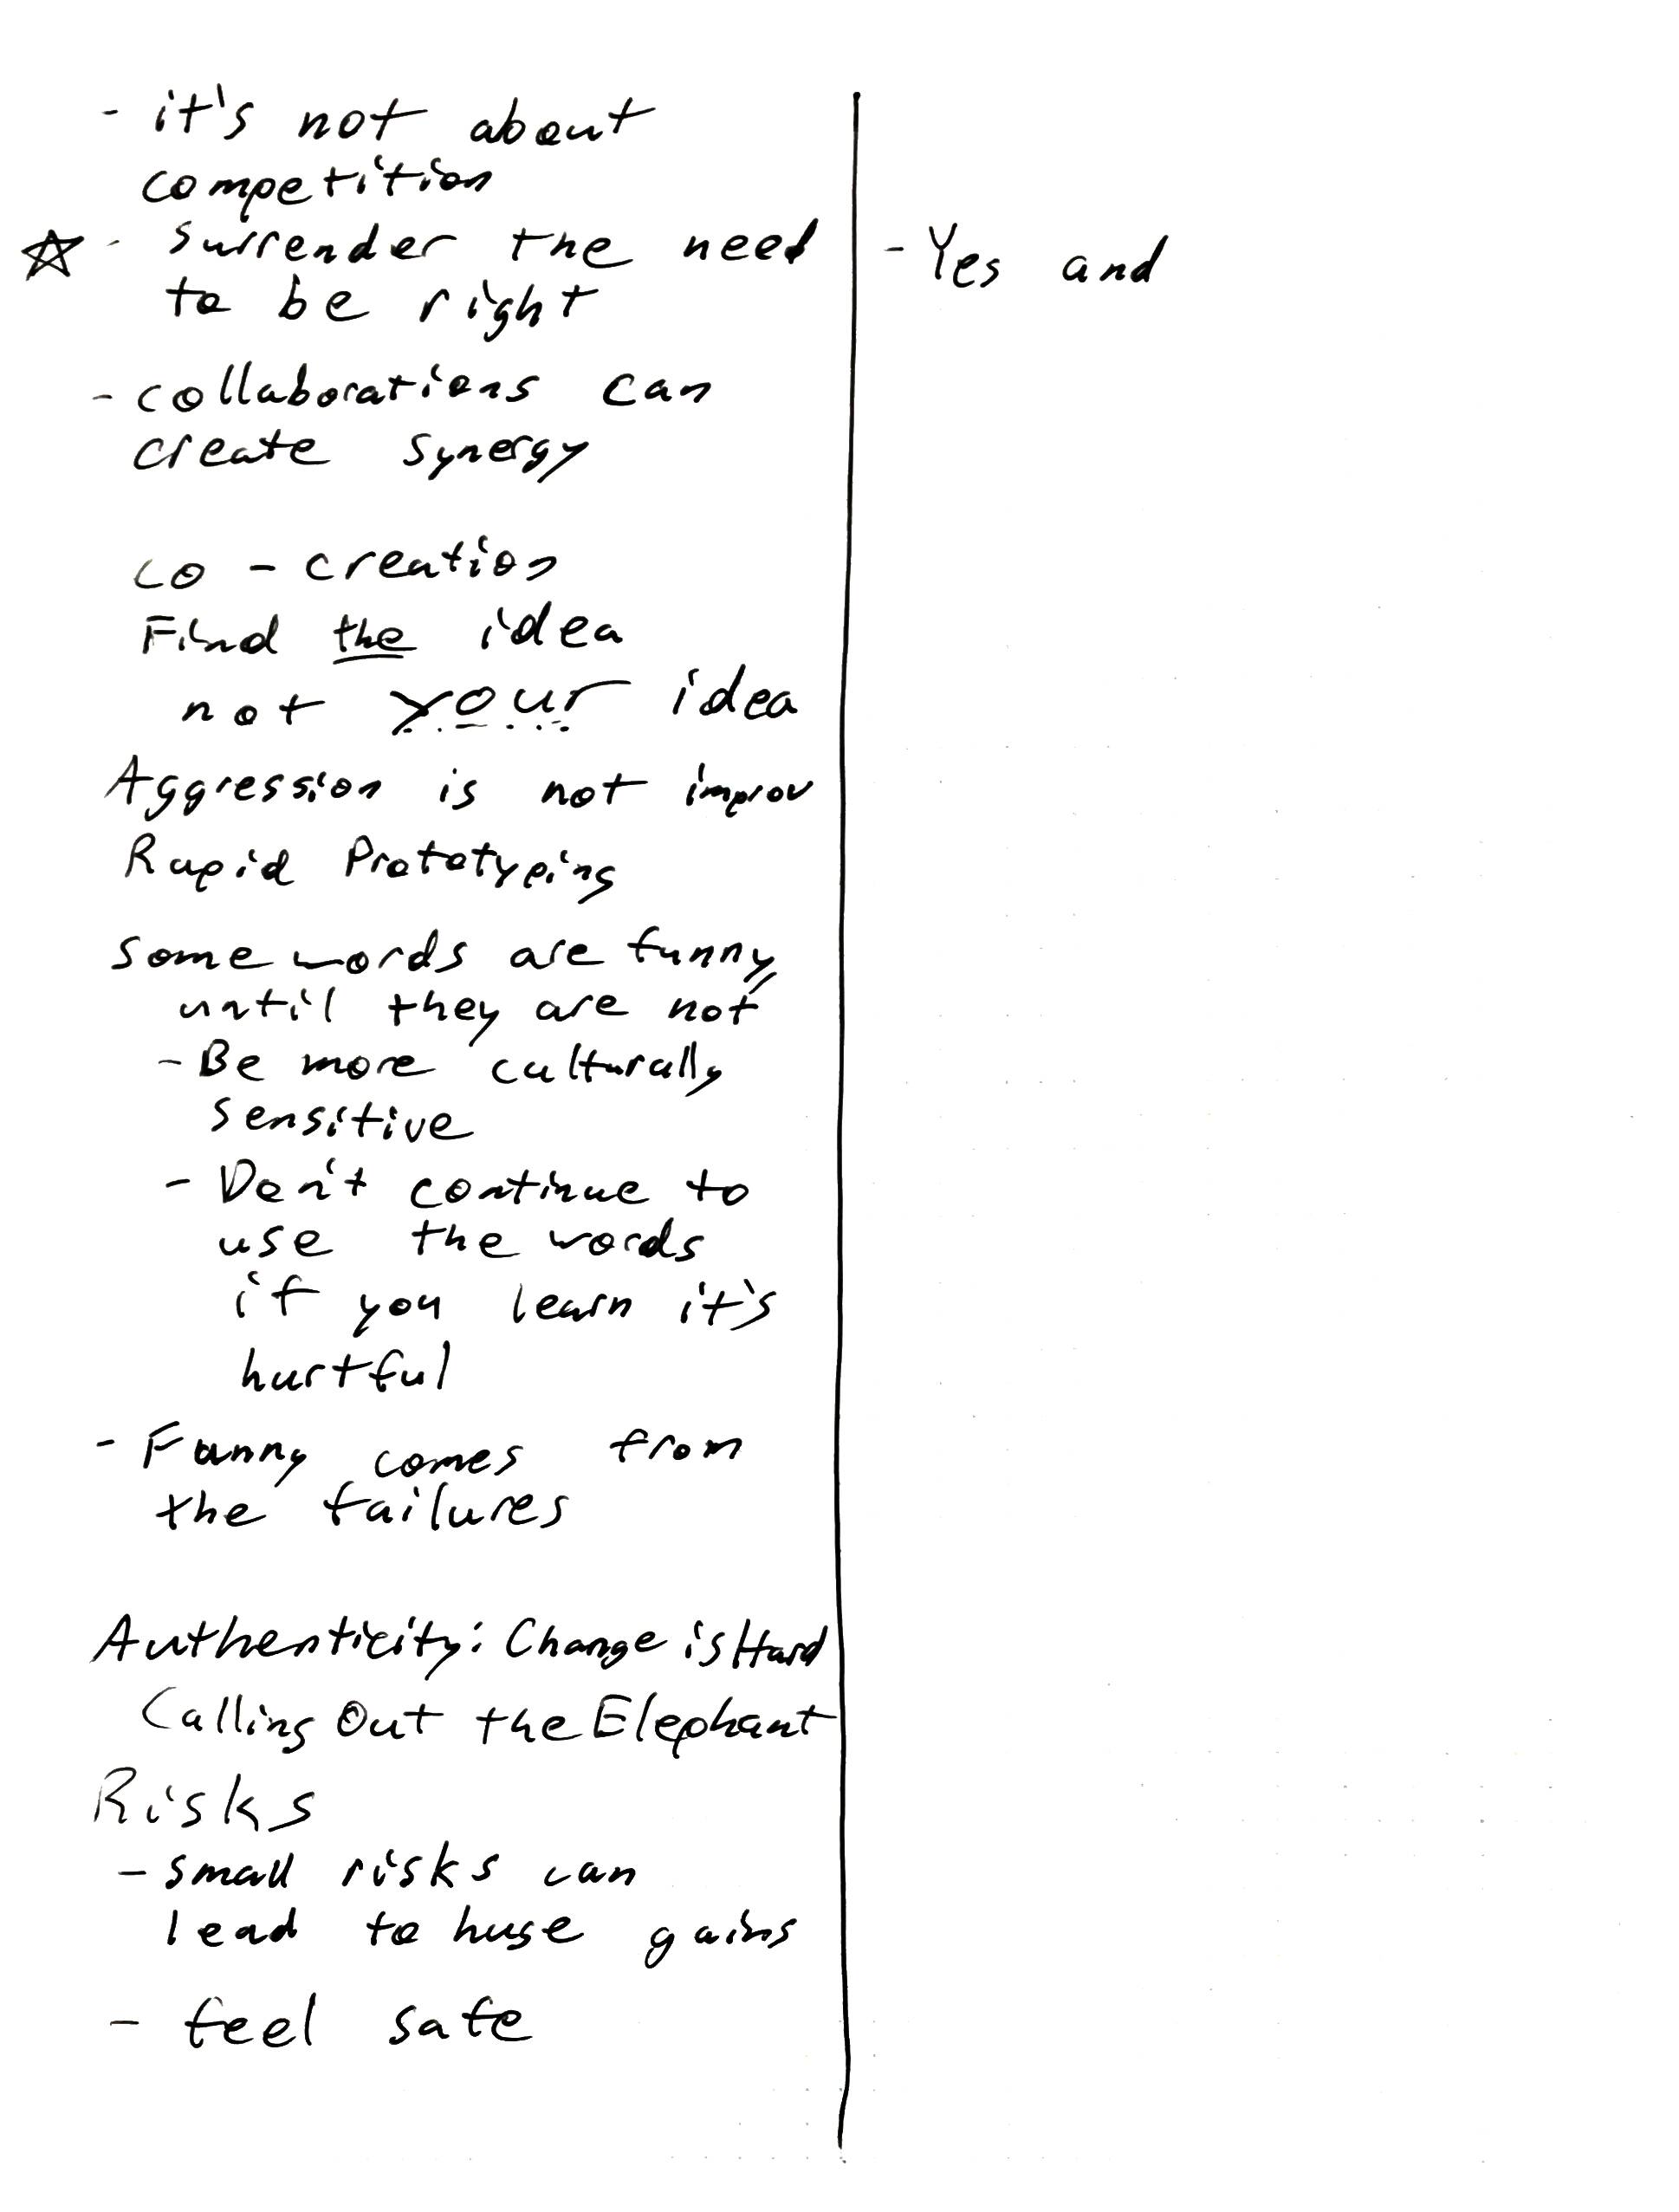 - it's not about
competition
☆ - surrender the need
to be right
- collaborations can
create synergy
co - creation
Find the idea
not your idea
Aggression is not improv
Rapid Prototyping
some words are funny
until they are not
- Be more culturally
sensitive
- Don't continue to
use the words
if you learn it's
hurtful
- Funny comes from
the failures
Authenticity: Change is Hard
Calling Out the Elephant
Risks
- small risks can
lead to huge gains
- feel safe
- Yes and